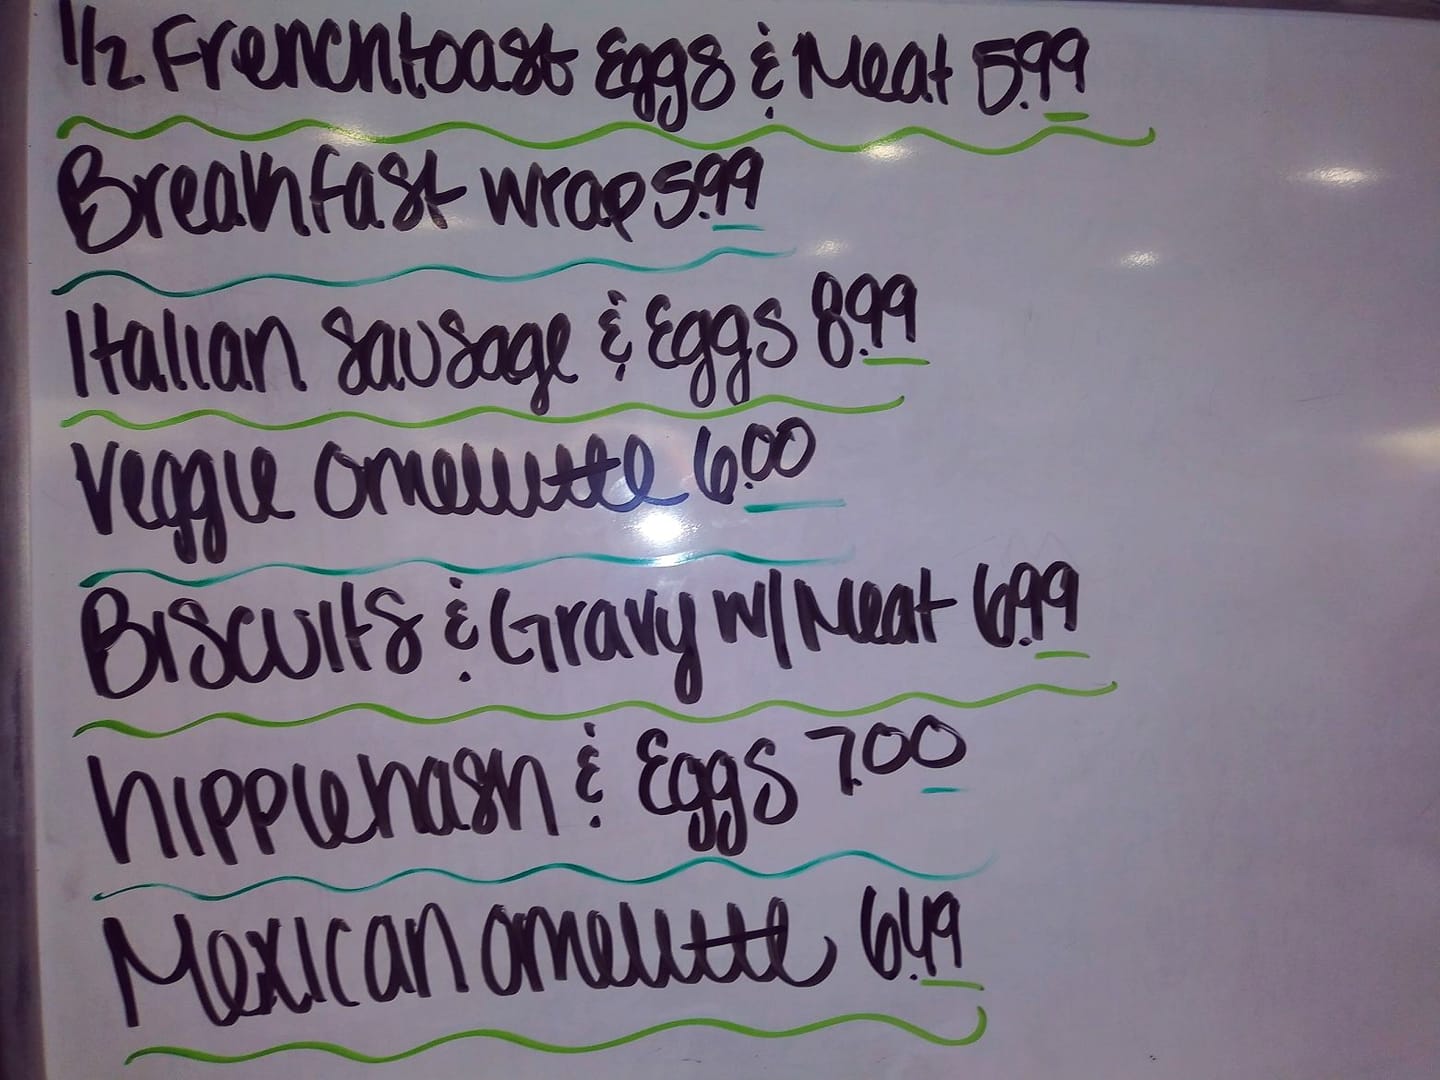 1/2 Frenchtoast Eggs & Meat 5.99
Breakfast wrap 5.99
Italian Sausage & Eggs 8.99
Veggie omellette 6.00
Biscuits & Gravy w/ Meat 6.99
hipplehash & Eggs 7.00
Mexican omellette 6.49